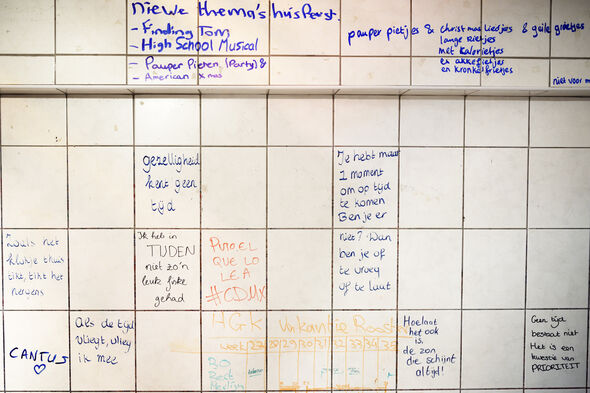 Nieuwe thema's huisfeest.
- Finding Tom
- High School Musical
- Pauper Pieten (Party) &
- American xmas
pauper pietjes & christmas liedjes & geile grietjes
lange Rietjes
met kalorietjes
ex akkefietjes
en kronkelfrietjes
niet voor m
gezelligheid
kent geen
tijd
Je hebt maar
1 moment
om op tijd
te komen
Ben je er
niet? Dan
ben je of
te vroeg
of te laat
Zoals het
klokje thuis
tikt, tikt het
nergens
Ik heb in
TIJDEN
niet zo'n
leuke
gehad
QUE LO
LEA
#CDMX
HGK Vakantie Rooster
week 27 28 29 30 31 32 33 34 35
CANTUS
Als de tijd
vliegt, vlieg
ik mee
Hoelaat
het ook
is.
de zon
die schijnt
altijd!
Geen tijd
bestaat niet
Het is een
kwestie van
PRIORITEIT